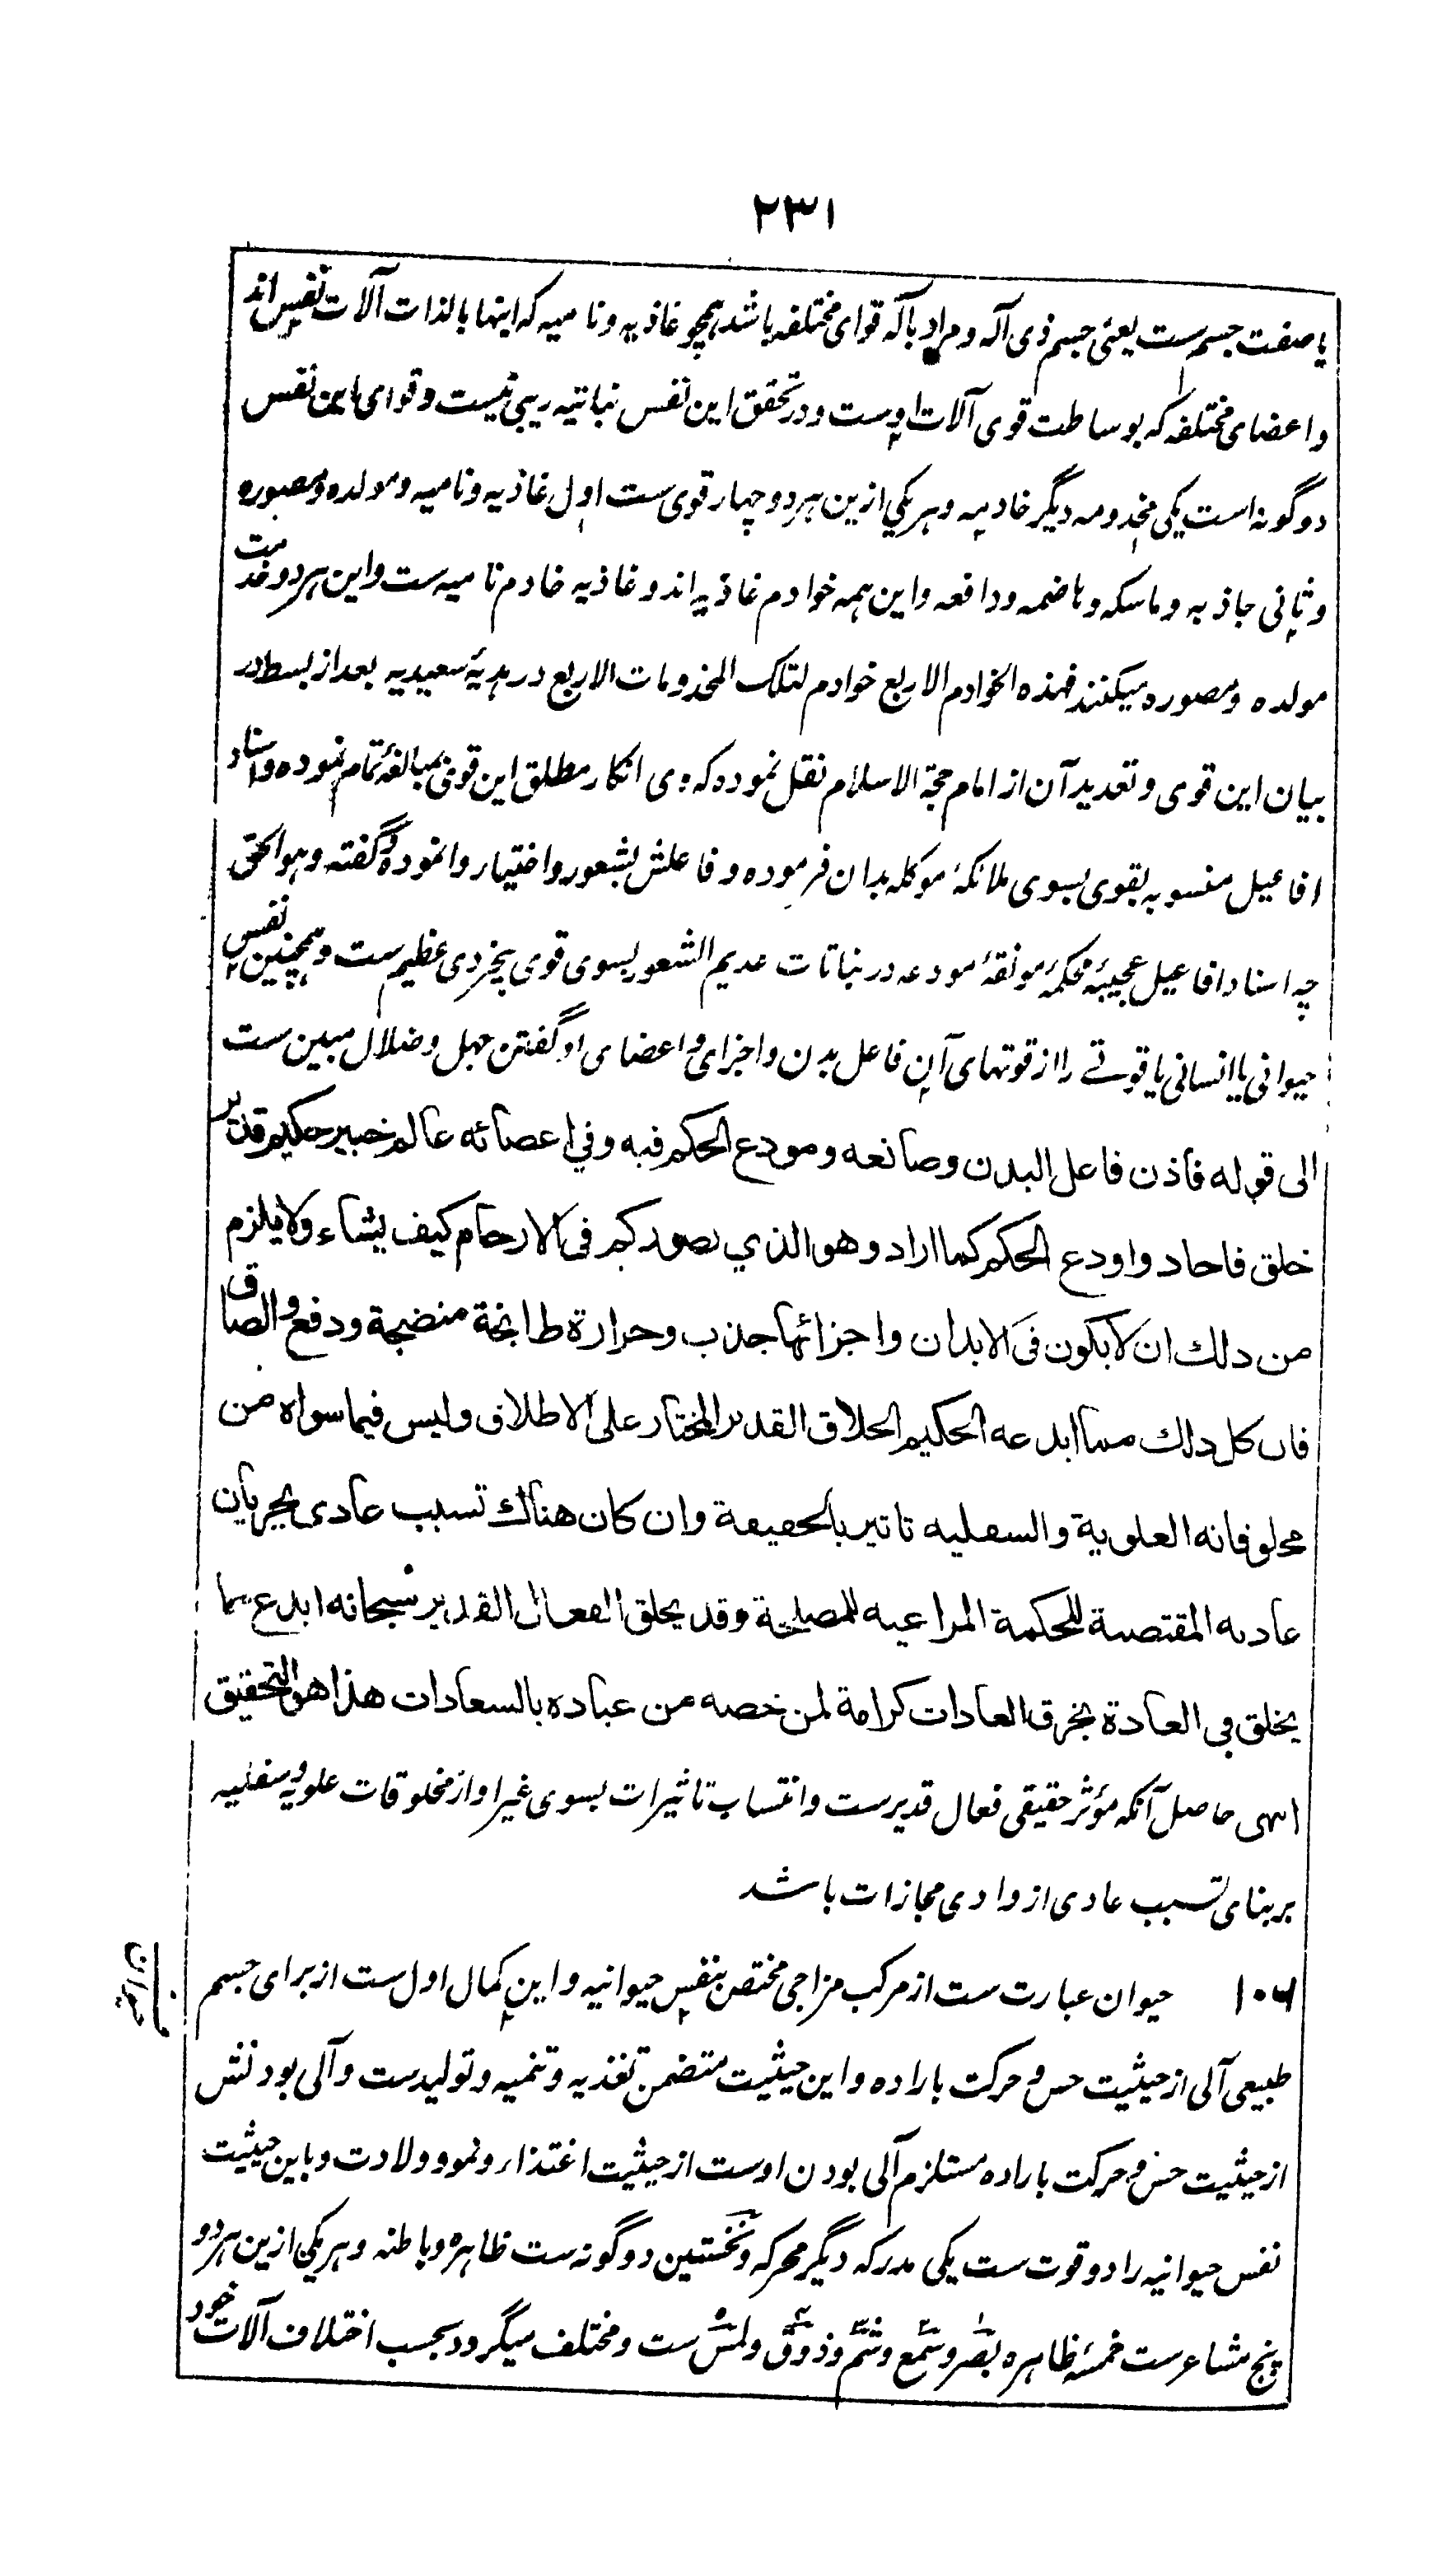 ۲۳۱
یا صفت جسم ست یعنی جسم ذی آلہ و مراد بآلہ قوای مختلفہ باشد ہمچو غاذیہ و نامیہ کہ اینہا بالذات آلات نفس اند
و اعضای مختلفہ کہ بوساطت قوی آلات اوست و در تحقق این نفس نباتیہ ریبی نیست و قوای این نفس
دو گونہ است یکی مخدومہ دیگر خادمہ و ہریکی ازین ہردو چہار قوی ست اول غاذیہ و نامیہ و مولدہ و مصورہ
و ثانی جاذبہ و ماسکہ و ہاضمہ و دافعہ و این ہمہ خوادم غاذیہ اند و غاذیہ خادم نامیہ ست و این ہردو خدمت
مولدہ و مصورہ میکنند فہذہ الخوادم الاربع خوادم لتلک المخدومات الاربع در ہدیۂ سعیدیہ بعد از بسط در
بیان این قوی و تعدید آن از امام حجۃ الاسلام نقل نمودہ کہ وی انکار مطلق این قوی بمبالغۂ تمام نمودہ و اسناد
افاعیل منسوبہ بقوی بسوی ملائکۂ موکلہ بدان فرمودہ و فاعلش بشعور و اختیار وانمودہ و گفتہ و ہو الحق
چہ اسناد افاعیل عجیبۂ محکمۂ مونقۂ مودعہ در نباتات عدیم الشعور بسوی قوی بیخردی عظیم ست و ہمچنین نفس
حیوانی یا انسانی یا قوتے را از قوتہای آن فاعل بدن و اجزای و اعضای او گفتن جہل و ضلال مبین ست
الی قوله فاذن فاعل البدن وصانعه ومودع الحکم فیه وفي اعضائه عالم خبیر حکیم قدیر
خلق فاجاد واودع الحکم کما اراد وهو الذي یصورکم فی الارحام کیف یشاء ولا یلزم
من ذلك ان لا یکون فی الابدان واجزائها جذب وحرارة طابخة منضجة ودفع والصاق
فان کل ذلك مما ابدعه الحکیم الخلاق القدیر المختار علی الاطلاق ولیس فیما سواه من
مخلوقاته العلویة والسفلیه تاثیر بالحقیقة وان کان هناك تسبب عادی بجریان
عادته المقتضیة للحکمة المراعیه للمصلحة وقد یخلق الفعال القدیر سبحانه ابدع مما
یخلق فی العادة بخرق العادات کرامة لمن خصه من عباده بالسعادات هذا هو التحقیق
انتہی حاصل آنکہ مؤثر حقیقی فعال قدیرست و انتساب تاثیرات بسوی غیر او از مخلوقات علویہ و سفلیہ
بر بنای تسبب عادی از وادی مجازات باشد
حیوان
۱۰۶ حیوان عبارت ست از مرکب مزاجی مختص بنفس حیوانیہ و این کمال اول ست از برای جسم
طبیعی آلی از حیثیت حس و حرکت بارادہ و این حیثیت متضمن تغذیہ و تنمیہ و تولیدست و آلی بودنش
از حیثیت حس و حرکت بارادہ مستلزم آلی بودن اوست از حیثیت اغتذاء و نمو و ولادت و باین حیثیت
نفس حیوانیہ را دو قوت ست یکی مدرکہ دیگر محرکہ و نخستین دو گونہ ست ظاہرہ و باطنہ و ہریکی ازین ہردو
پنج مشاعرست خمسۂ ظاہرہ بصر و سمع و شم و ذوق و لمس ست و مختلف میگردد بحسب اختلاف آلات خود